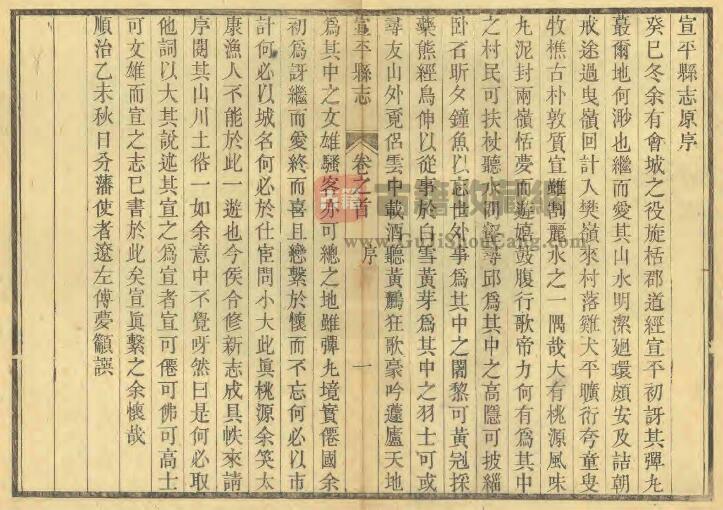 宣平縣志原序
癸巳冬余有會城之役旋栝郡道經宣平初訝其彈丸
蕞爾地何渺也繼而愛其山水明潔廻環頗安及詰朝
戒途過曳嶺回計入樊嶺來村落雞犬平曠衍夸童叟
牧樵古朴敦質宣雖割麗水之一隅哉大有桃源風味
九泥封兩嶺恬夢而遊嬉鼓腹行歌帝力何有爲其中
之村民可扶杖聽水洞壑尋邱爲其中之高隱可披緇
卧石昕夕鐘魚以忘世外事爲其中之闍黎可黃冠採
藥熊經鳥伸以從事於白雪黃芽爲其中之羽士可或
尋友山外覔侶雲中載酒聽黃鸝狂歌豪吟蘧廬天地
宣平縣志 卷之首 序 一
爲其中之文雄騷客亦可總之地雖彈丸境實僊國余
初爲訝繼而愛終而喜且戀繫於懷而不忘何必以市
計何必以城名何必於仕宦問小大此眞桃源余笑太
康漁人不能於此一遊也今侯合修新志成具帙來請
序閱其山川土俗一如余意中不覺呀然曰是何必取
他詞以大其說述其宣之爲宣者宣可僊可佛可高士
可文雄而宣之志已書於此矣宣眞繫之余懷哉
順治乙未秋日分藩使者遼左傅夢籲譔
古籍收藏網
www.GuJiShouCang.com